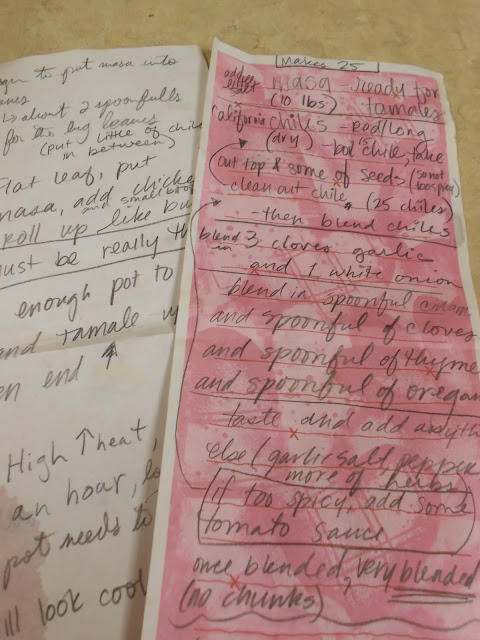 to put masa into
↳ about 2 spoonfulls
for the big leaves
(put little of chile
in between)
flat leaf, put
masa, add
and small
roll up like
must be really
enough pot to
and tamale
end ↑
High ↑ heat,
an hour,
pot needs to
look cool
Makes 25
masa - ready for
(10 lbs) tamales
California chiles - pod/long
(dry) - boil chile, take
out top & some of seeds (so not
too spicy)
- clean out chile (25 chiles)
- then blend chiles
blend in 3 cloves garlic
and 1 white onion
blend in spoonful
and spoonful of cloves
and spoonful of thyme
and spoonful of
taste and add
else (garlic salt, pepper
more of herbs
if too spicy, add some
tomato sauce
once blended, very blended
(no chunks)